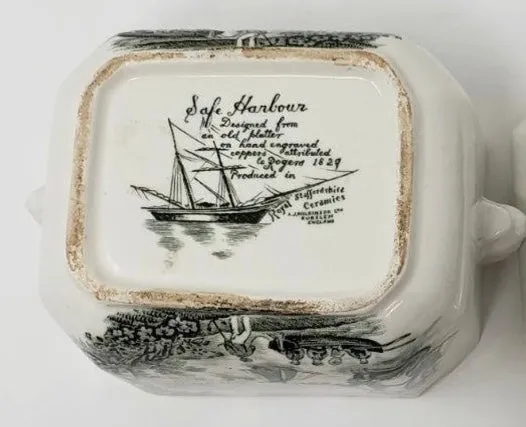 Safe Harbour
Designed from
an old platter
on hand engraved
coppers attributed
to Rogers 1829
Produced in
Royal Staffordshire
Ceramics
A.J. WILKINSON LTD
BURSLEM
ENGLAND